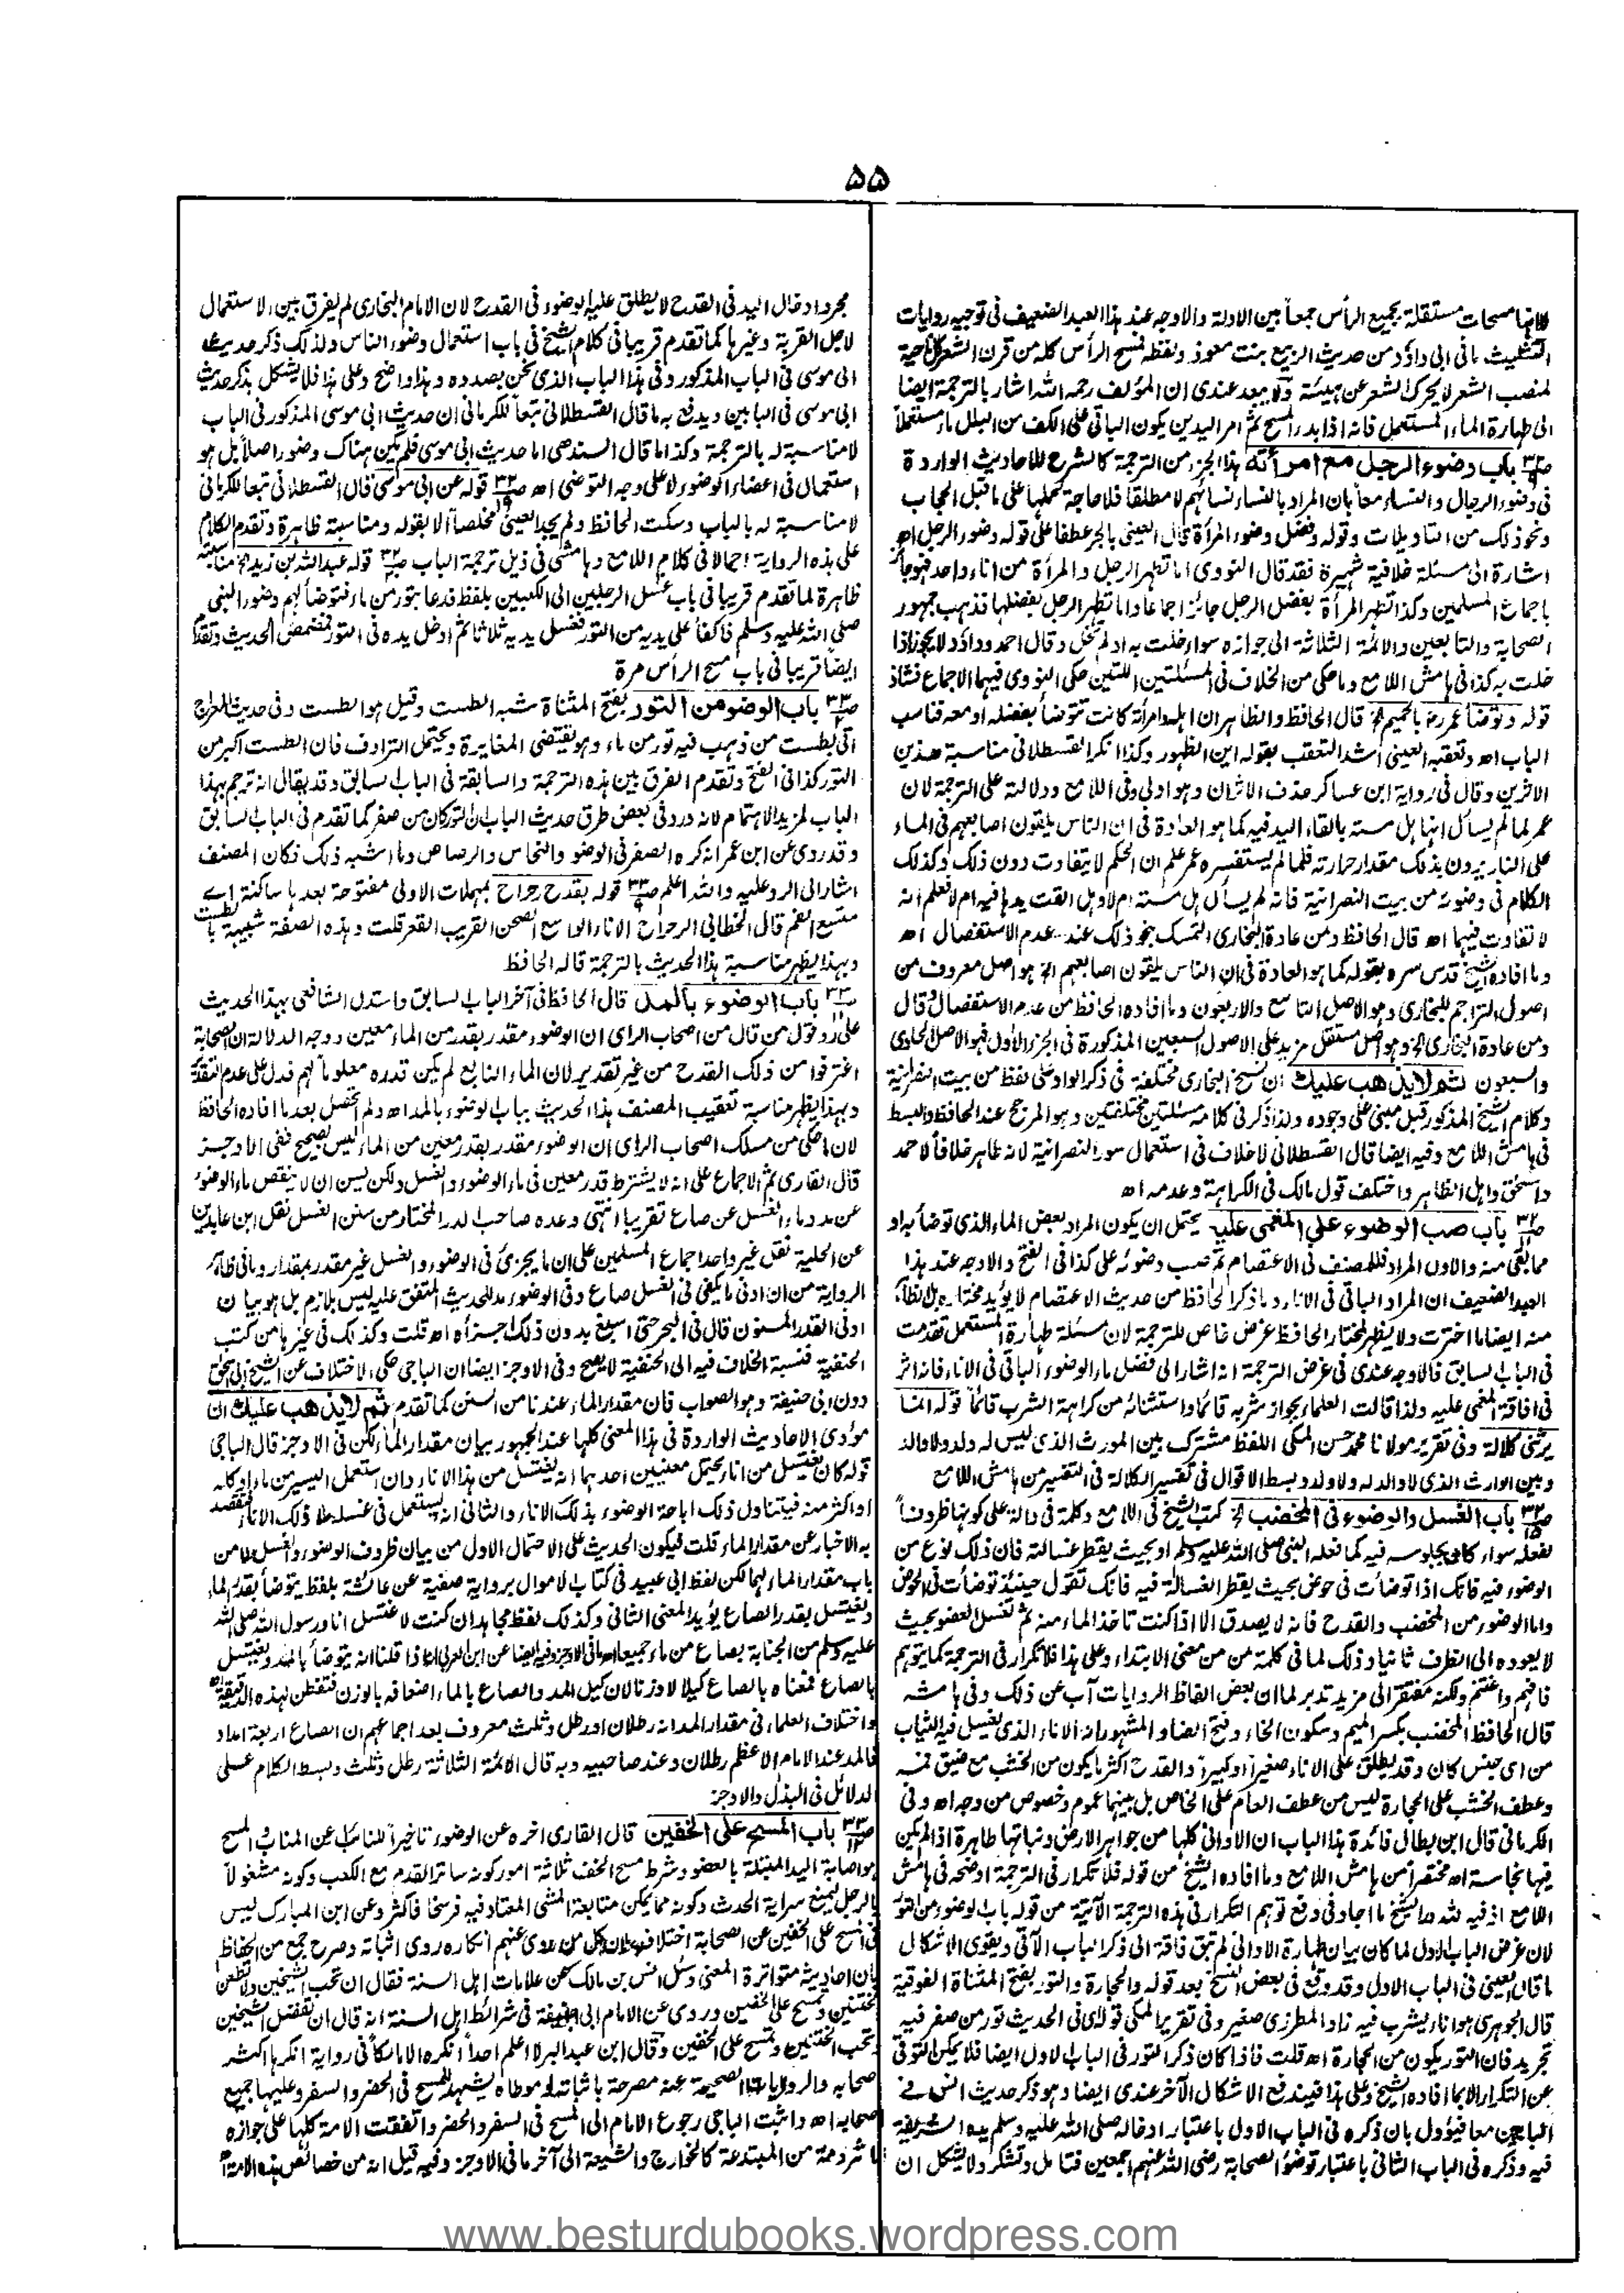 ۵۵
كلانها مسحات مستقلة بجميع الرأس جمعاً بين الادلة والاوجه عند هذا العبد الضعيف فى توجيه روايات
التثليث ما فى ابى داؤد من حديث الربيع بنت معوذ ولفظه فمسح الرأس كله من قرن الشعر كل ناحية
لمنصب الشعر لا يحرك الشعر عن هيئته ولا يبعد عندى ان المؤلف رحمه الله اشار بالترجمة ايضا
الى طهارة الماء المستعمل فانه اذا بدء المسح ثم امر اليدين يكون الباقى على الكف من البلل ماء مستعملاً
باب وضوء الرجل مع امرأته هذا الجزء من الترجمة كالشرح للأحاديث الواردة
فى وضوء الرجال والنساء معاً بان المراد بالنساء نساءهم لا مطلقا فلا حاجة لحملها على ما قبل الحجاب
ونحو ذلك من التاويلات وقوله وفضل وضوء المرأة قال العينى بالجر عطفا على قوله وضوء الرجل اھ
اشارة الى مسئلة خلافية شهيرة فقد قال النووى اما تطهر الرجل والمرأة من اناء واحد فهو جائز
باجماع المسلمين وكذا تطهر المرأة بفضل الرجل جائز اجماعا واما تطهر الرجل بفضلها فذهب جمهور
الصحابة والتابعين والائمة الثلاثة الى جوازه سواء خلت به او لم تخل وقال احمد وداؤد لا يجوز اذا
خلت به كذا فى هامش اللامع وما حكى من الخلاف فى المسئلتين اللتين حكى النووى فيهما الاجماع فشاذ
قوله وتوضأ عمر رض بالحميم الخ قال الحافظ والظاهر ان اهله وامرأته كانت تتوضأ بفضله او معه فناسب
الباب اھ وتعقبه العينى اشد التعقب بقوله اين الظهور وكذا انكر القسطلانى مناسبة هذين
الاثرين وقال فى رواية ابن عساكر حذف الاثران وهو اولى وفى اللامع ودلالته على الترجمة لان
عمر لما لم يسأل انها هل مسته بالقاء اليد فيه كما هو العادة فى ان الناس يلقون اصابعهم فى الماء
على النار يرون بذلك مقدار حرارته فلما لم يستفسره عمر علم ان الحكم لا يتفاوت دون ذلك وكذلك
الكلام فى وضوئه من بيت النصرانية فانه لم يسأل هل مسته ام لا وهل القت يدها فيه ام لا فعلم انه
لا تفاوت فيهما اھ قال الحافظ ومن عادة البخارى التمسك بنحو ذلك عند عدم الاستفصال اھ
وما افاده الشيخ قدس سره بقوله كما هو العادة فى ان الناس يلقون اصابعهم الخ هو اصل معروف من
اصول التراجم للبخارى وهو الاصل التاسع والاربعون وما افاده الحافظ من عدم الاستفصال وقال
ومن عادة البخارى الخ وهو اصل مستقل مزيد على الاصول السبعين المذكورة فى الجزء الاول فهو الاصل الحادى
والسبعون ثم لا يذهب عليك ان نسخ البخارى مختلفة فى ذكر الواو على لفظ من بيت النصرانية
وكلام الشيخ المذكور قبل مبنى على وجوده ولذا ذكر فى كلامه مسئلتين مختلفتين وهو المرجح عند الحافظ والبسط
فى هامش اللامع وفيه ايضا قال القسطلانى لا خلاف فى استعمال سور النصرانية لانه طاهر خلافاً لاحمد
واسحٰق واهل الظاهر واختلف قول مالك فى الكراهة وعدمه اھ
باب صب الوضوء على المغمى عليه يحتمل ان يكون المراد بعض الماء الذى توضأ به او
مما بقى منه والاول المراد فللمصنف فى الاعتصام ثم صب وضوئه على كذا فى الفتح والاوجه عند هذا
العبد الضعيف ان المراد الباقى فى الاناء وما ذكر الحافظ من حديث الاعتصام لا يؤيد مختاره بل نظائره
منه ايضا ما اخترت ولا يظهر لمختار الحافظ غرض خاص للترجمة لان مسئلة طهارة المستعمل تقدمت
فى الباب السابق فالاوجه عندى فى غرض الترجمة انه اشار الى فضل ماء الوضوء الباقى فى الاناء فانه اثر
فى افاقة المغمى عليه ولذا قالت العلماء بجواز شربه قائما واستثنائه من كراهة الشرب قائماً قوله انما
يرثنى كلالة وفى تقرير مولانا محمد حسن المكى اللفظ مشترك بين المورث الذى ليس له ولد ولا والد
وبين الوارث الذى لا والد له ولا ولد وبسط الاقوال فى تفسير الكلالة فى التفسير من هامش اللامع
باب الغسل والوضوء فى المخضب الخ كتب الشيخ فى اللامع وكلمة فى دالة على كونها ظروفاً
لفعله سواء كان بجلوسه فيه كما فعله النبى صلى الله عليه وسلم او بحيث يقطر غسالته فان ذلك نوع من
الوضوء فيه فانك اذا توضأت فى حوض بحيث يقطر الغسالة فيه فانك تقول حينئذ توضأت فى الحوض
واما الوضوء من المخضب والقدح فانه لا يصدق الا اذا كنت تاخذ الماء منه ثم تغسل العضو بحيث
لا يعوده الى الظرف ثانيا وذلك لما فى كلمة من من معنى الابتداء وعلى هذا فلا تكرار فى الترجمة كما يتوهم
فافهم واغتنم ولكنه مفتقر الى مزيد تدبر لما ان بعض الفاظ الروايات آب عن ذلك وفى هامشه
قال الحافظ المخضب بكسر الميم وسكون الخاء وفتح الضاد المشهور انه الاناء الذى يغسل فيه الثياب
من اى جنس كان وقد يطلق على الاناء صغيراً او كبيراً والقدح اكثر ما يكون من الخشب مع ضيق فمه
وعطف الخشب على الحجارة ليس من عطف العام على الخاص بل بينهما عموم وخصوص من وجه اھ وفى
الكرمانى قال ابن بطال فائدة هذا الباب ان الاوانى كلها من جواهر الارض ونباتها طاهرة اذا لم يكن
فيها نجاسة اھ مختصراً من هامش اللامع وما افاده الشيخ من قوله فلا تكرار فى الترجمة اوضحه فى هامش
اللامع اذ فيه لله در الشيخ ما اجاد فى دفع توهم التكرار فى هذه الترجمة الآتية من قوله باب الوضوء من التور
لان غرض الباب الاول لما كان بيان طهارة الاوانى لم تبق فاقة الى ذكر الباب الآتى ويقوى الاشكال
ما قال العينى فى الباب الاول وقد وقع فى بعض النسخ بعد قوله والحجارة والتور بفتح المثناة الفوقية
قال الجوهرى هو اناء يشرب فيه زاد المطرزى صغير وفى تقرير المكى قوله فى الحديث تور من صفر فيه
تجريد فان التور يكون من الحجارة اھ قلت فاذا كان ذكر التور فى الباب الاول ايضا فلا يمكن التوقى
عن التكرار الا بما افاده الشيخ وعلى هذا فيندفع الاشكال الآخر عندى ايضا وهو ذكر حديث انس فى
البابين معا فيؤول بان ذكره فى الباب الاول باعتبار ادخاله صلى الله عليه وسلم يده الشريفة
فيه وذكره فى الباب الثانى باعتبار توضؤ الصحابة رضى الله عنهم اجمعين فتامل وتشكر ولا يشكل ان
مجرد ادخال اليد فى القدح لا يطلق عليه الوضوء فى القدح لان الامام البخارى لم يفرق بين الاستعمال
لاجل القربة وغيرها كما تقدم قريبا فى كلام الشيخ فى باب استعمال وضوء الناس ولذلك ذكر حديث
ابى موسى فى الباب المذكور وفى هذا الباب الذى نحن بصدده وهذا واضح وعلى هذا فلا يشكل بذكر حديث
ابى موسى فى البابين ويدفع به ما قال القسطلانى تبعاً للكرمانى ان حديث ابى موسى المذكور فى الباب
لا مناسبة له بالترجمة وكذا ما قال السندهى اما حديث ابى موسى فلم يكن هناك وضوء اصلاً بل هو
استعمال فى اعضاء الوضوء لا على وجه التوضى اھ قوله عن ابى موسى قال القسطلانى تبعا للكرمانى
لا مناسبة له بالباب وسكت الحافظ ولم يجد العينى مخلصاً الا بقوله ومناسبة ظاهرة وتقدم الكلام
على هذه الرواية اجمالا فى كلام اللامع وهامشى فى ذيل ترجمة الباب قوله عبد الله بن زيد الخ مناسبته
ظاهرة لما تقدم قريبا فى باب غسل الرجلين الى الكعبين بلفظ فدعا بتور من ماء فتوضأ لهم وضوء النبى
صلى الله عليه وسلم فاكفأ على يديه من التور فغسل يديه ثلاثا ثم ادخل يده فى التور فمضمض الحديث وتقدم
ايضا قريبا فى باب مسح الرأس مرة
باب الوضو من التور بفتح المثناة شبه الطست وقيل هو الطست وفى حديث المعراج
اتى بطست من ذهب فيه تور من ماء وهو يقتضى المغايرة ويحتمل الترادف فان الطست اكبر من
التور كذا فى الفتح وتقدم الفرق بين هذه الترجمة والسابقة فى الباب السابق وقد يقال انه ترجم بهذا
الباب لمزيد الاهتمام لانه ورد فى بعض طرق حديث الباب ان التور كان من صفر كما تقدم فى الباب السابق
وقد روى عن ابن عمر انه كره الصفر فى الوضو والنحاس والرصاص وما اشبه ذلك فكان المصنف
اشار الى الرد عليه والله اعلم قوله بقدح رحراح بمهملات الاولى مفتوحة بعدها ساكنة اے
متسع الفم قال الخطابى الرحراح الاناء الواسع الصحن القريب القعر قلت وهذه الصفة شبيهة بالطست
وبهذا يظهر مناسبة هذا الحديث بالترجمة قاله الحافظ
باب الوضوء بالمد قال الحافظ فى آخر الباب السابق واستدل الشافعى بهذا الحديث
على رد قول من قال من اصحاب الراى ان الوضوء مقدر بقدر من الماء معين ووجه الدلالة ان الصحابة
اغترفوا من ذلك القدح من غير تقدير لان الماء النابع لم يكن قدره معلوماً لهم فدل على عدم التقدير
وبهذا يظهر مناسبة تعقيب المصنف هذا الحديث بباب الوضوء بالمد اھ ولم اتحصل بعد ما افاده الحافظ
لان ما حكى من مسلك اصحاب الراى ان الوضوء مقدر بقدر معين من الماء ليس بصحيح ففى الاوجز
قال القارى ثم الاجماع على انه لا يشترط قدر معين فى ماء الوضوء والغسل ولكن ليس ان لا ينقص ماء الوضوء
عن مد وماء الغسل عن صاع تقريبا انتهى وعده صاحب الدر المختار من سنن الغسل نقل ابن عابدين
عن الحلية نقل غير واحد اجماع المسلمين على ان ما يجزئ فى الوضوء والغسل غير مقدر بمقدار وما فى ظاهر
الرواية من ان ادنى ما يكفى فى الغسل صاع وفى الوضوء مد للحديث المتفق عليه ليس بلازم بل هو بيان
ادنى القدر المسنون قال فى البحر حتى اسبغ بدون ذلك اجزأه اھ قلت وكذلك فى غيرها من كتب
الحنفية فنسبة الخلاف فيه الى الحنفية لا يصح وفى الاوجز ايضا ان الباجى حكى الاختلاف عن الشيخ ابى اسحٰق
دون ابى حنيفة وهو الصواب فان مقدار الماء عندنا من السنن كما تقدم ثم لا يذهب عليك ان
مؤدى الاحاديث الواردة فى هذا المعنى كلها عند الجمهور بيان مقدار الماء لكن فى الاوجز قال الباجى
قوله كان يغتسل من اناء يحتمل معنيين احدهما انه يغتسل من هذا الاناء وان استعمل اليسير من ماء او كله
او اكثر منه فيتناول ذلك اباحة الوضوء بذلك الاناء والثانى انه يستعمل فى غسله ملأ ذلك الاناء فيقصد
به الاخبار عن مقدار الماء قلت فيكون الحديث على الاحتمال الاول من بيان ظروف الوضوء والغسل لا من
باب مقدار الماء لهما لكن لفظ ابى عبيد فى كتاب الاموال برواية صفية عن عائشة بلفظ يتوضأ بقدر الماء
ويغتسل بقدر الصاع يؤيد المعنى الثانى وكذلك لفظ مجاهد ان كنت لاغتسل انا ورسول الله صلى الله
عليه وسلم من الجنابة بصاع من ماء جميعا اھ ما فى الاوجز وفيه ايضا عن ابن العربى اذا قلنا انه يتوضأ بالمد ويغتسل
بالصاع فمعناه بالصاع كيلا لا وزنا لان كيل المد والصاع بالماء اضعافه بالوزن فتفطن لهذه الدقيقة اھ
واختلاف العلماء فى مقدار المد انه رطلان او رطل وثلث معروف بعد اجماعهم ان الصاع اربعة امداد
فالمد عند الامام الاعظم رطلان وعند صاحبيه وبه قال الائمة الثلاثة رطل وثلث وبسط الكلام على
الدلائل فى البذل والاوجز
باب المسح على الخفين قال القارى اخره عن الوضوء تاخيراً للنائب عن المناب والمسح
هو اصابة اليد المبتلة بالعضو وشرط مسح الخف ثلاثة امور كونه ساترا لقدم مع الكعب وكونه مشغولاً
بالرجل ليمنع سراية الحدث وكونه مما يمكن متابعة المشى المعتاد فيه فرسخا فاكثر وعن ابن المبارك ليس
فى المسح على الخفين عن الصحابة اختلاف لان كل من روى عنهم انكاره روى اثباته وصرح جمع من الحفاظ
بان احاديثه متواترة المعنى وسئل انس بن مالك عن علامات اهل السنة فقال ان تحب الشيخين ولا تطعن
الختنين وتمسح على الخفين وروى عن الامام ابى حنيفة فى شرائط اهل السنة انه قال ان تفضل الشيخين
وتحب الختنين وتمسح على الخفين وقال ابن عبد البر لا اعلم احداً انكره الا مالكاً فى رواية انكرها اكثر
صحابه والروايات الصحيحة عنه مصرحة باثباته وموطاه يشهد للمسح فى الحضر والسفر وعليها جميع
اصحابه اھ واثبت الباجى رجوع الامام الى المسح فى السفر والحضر واتفقت الامة كلها على جوازه
الا شرذمة من المبتدعة كالخوارج والشيعة الى آخر ما فى الاوجز وفيه قيل انه من خصائص هذه الامة
www.besturdubooks.wordpress.com